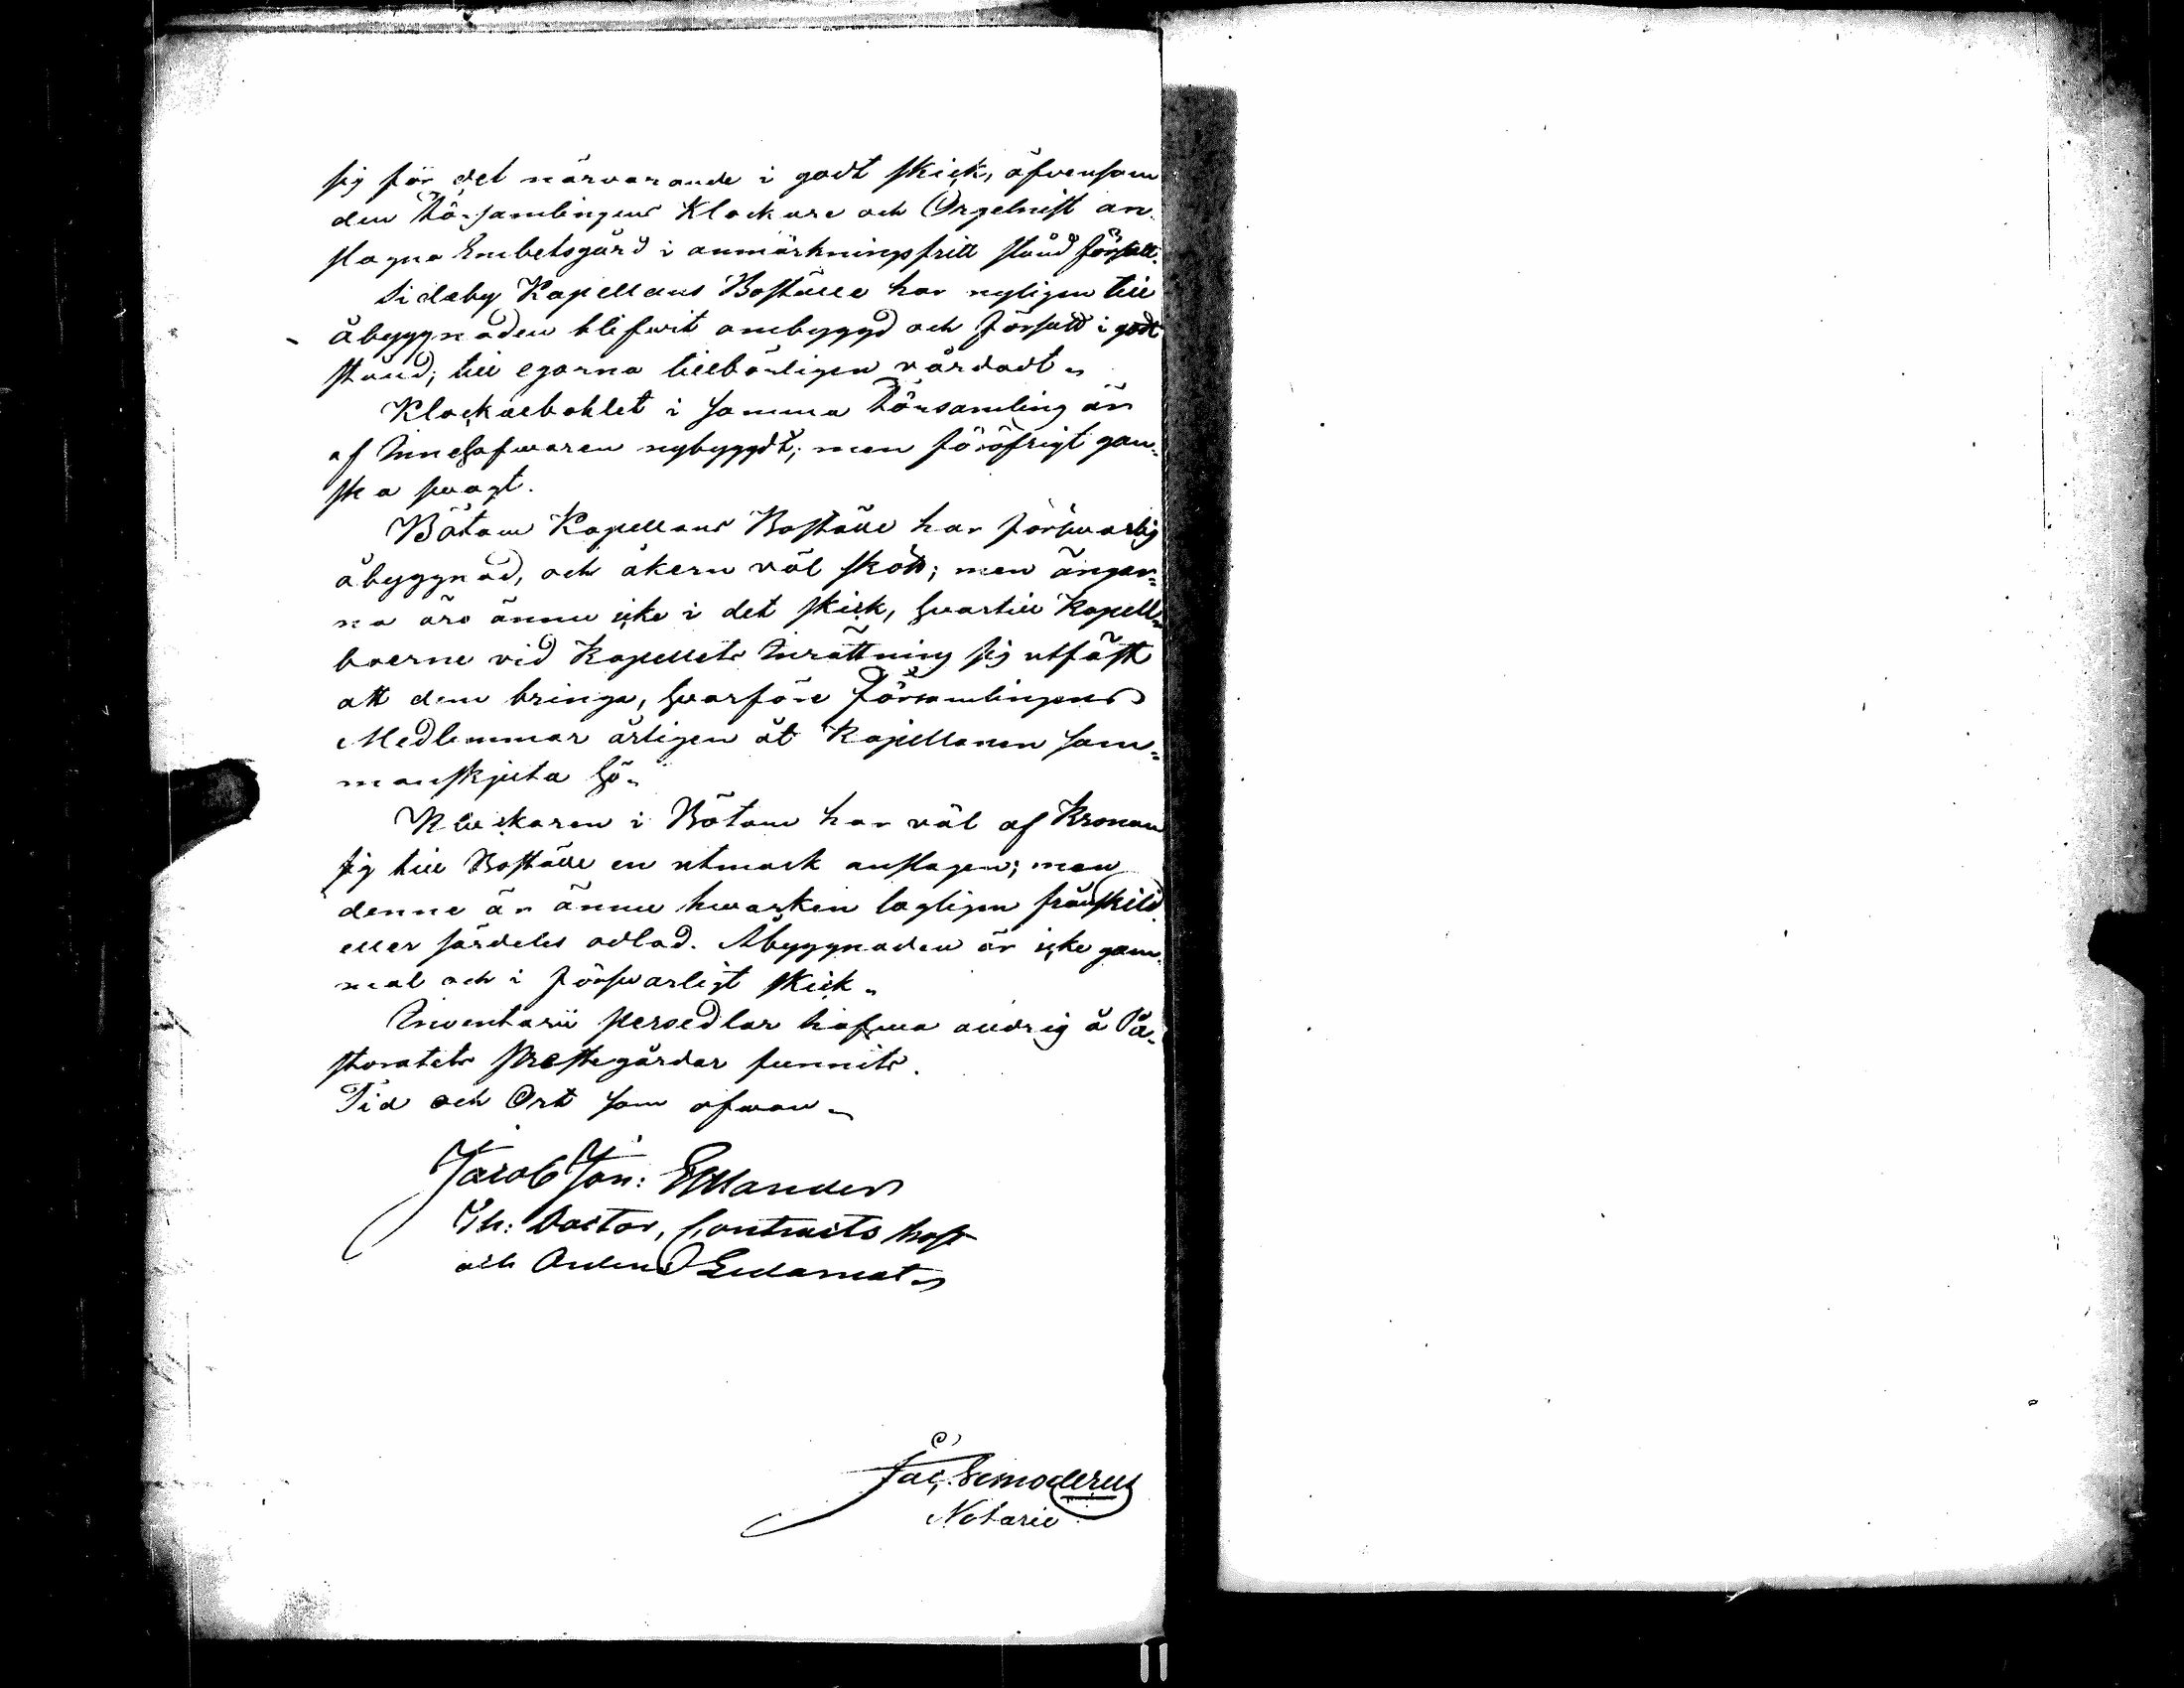 sig för det närvarande i godt skick, äfvensom
den Församlingens Klockare och Orgelnist an-
slagna Embetsgård i anmärkningsfritt stånd försatt.
Sideby Kapellans Boställe har nyligen till
åbyggnaden blifwit ombyggd och försatt i godt
stånd; till egorna tillbörligen vårdadt.
Klockaebohlet i samma Församling är
af Innehafwaren nybyggdt; men föröfrigt gan-
ska swagt.
Bötom Kapellans Boställe har förswarlig
åbyggnad, och åkern väl skött; men ängar=
na äro ännu icke i det skick, hwartill Kapell=
boerne vid Kapellets Inrättning sig utfäst
att dem bringa, hwarföre Församlingens
Medlemmar årligen åt Kapellanen sam=
manskjuta hö.
Klockaren i Bötom har väl af Kronan
sig till Boställe en utmark anslagen; men
denne är ännu hwarken lagligen frånskild
eller särdeles odlad. Åbyggnaden är icke gam-
mal och i förswarligt skick.
Inventarii persedlar hafwa aldrig å Pa-
storatets Prestegårdar funnits.
Tid och Ort som ofwan
Jacob Jon:
Th: Doctor, Contracts Prost
och Ordens Ledamot
Jac.
Notarie